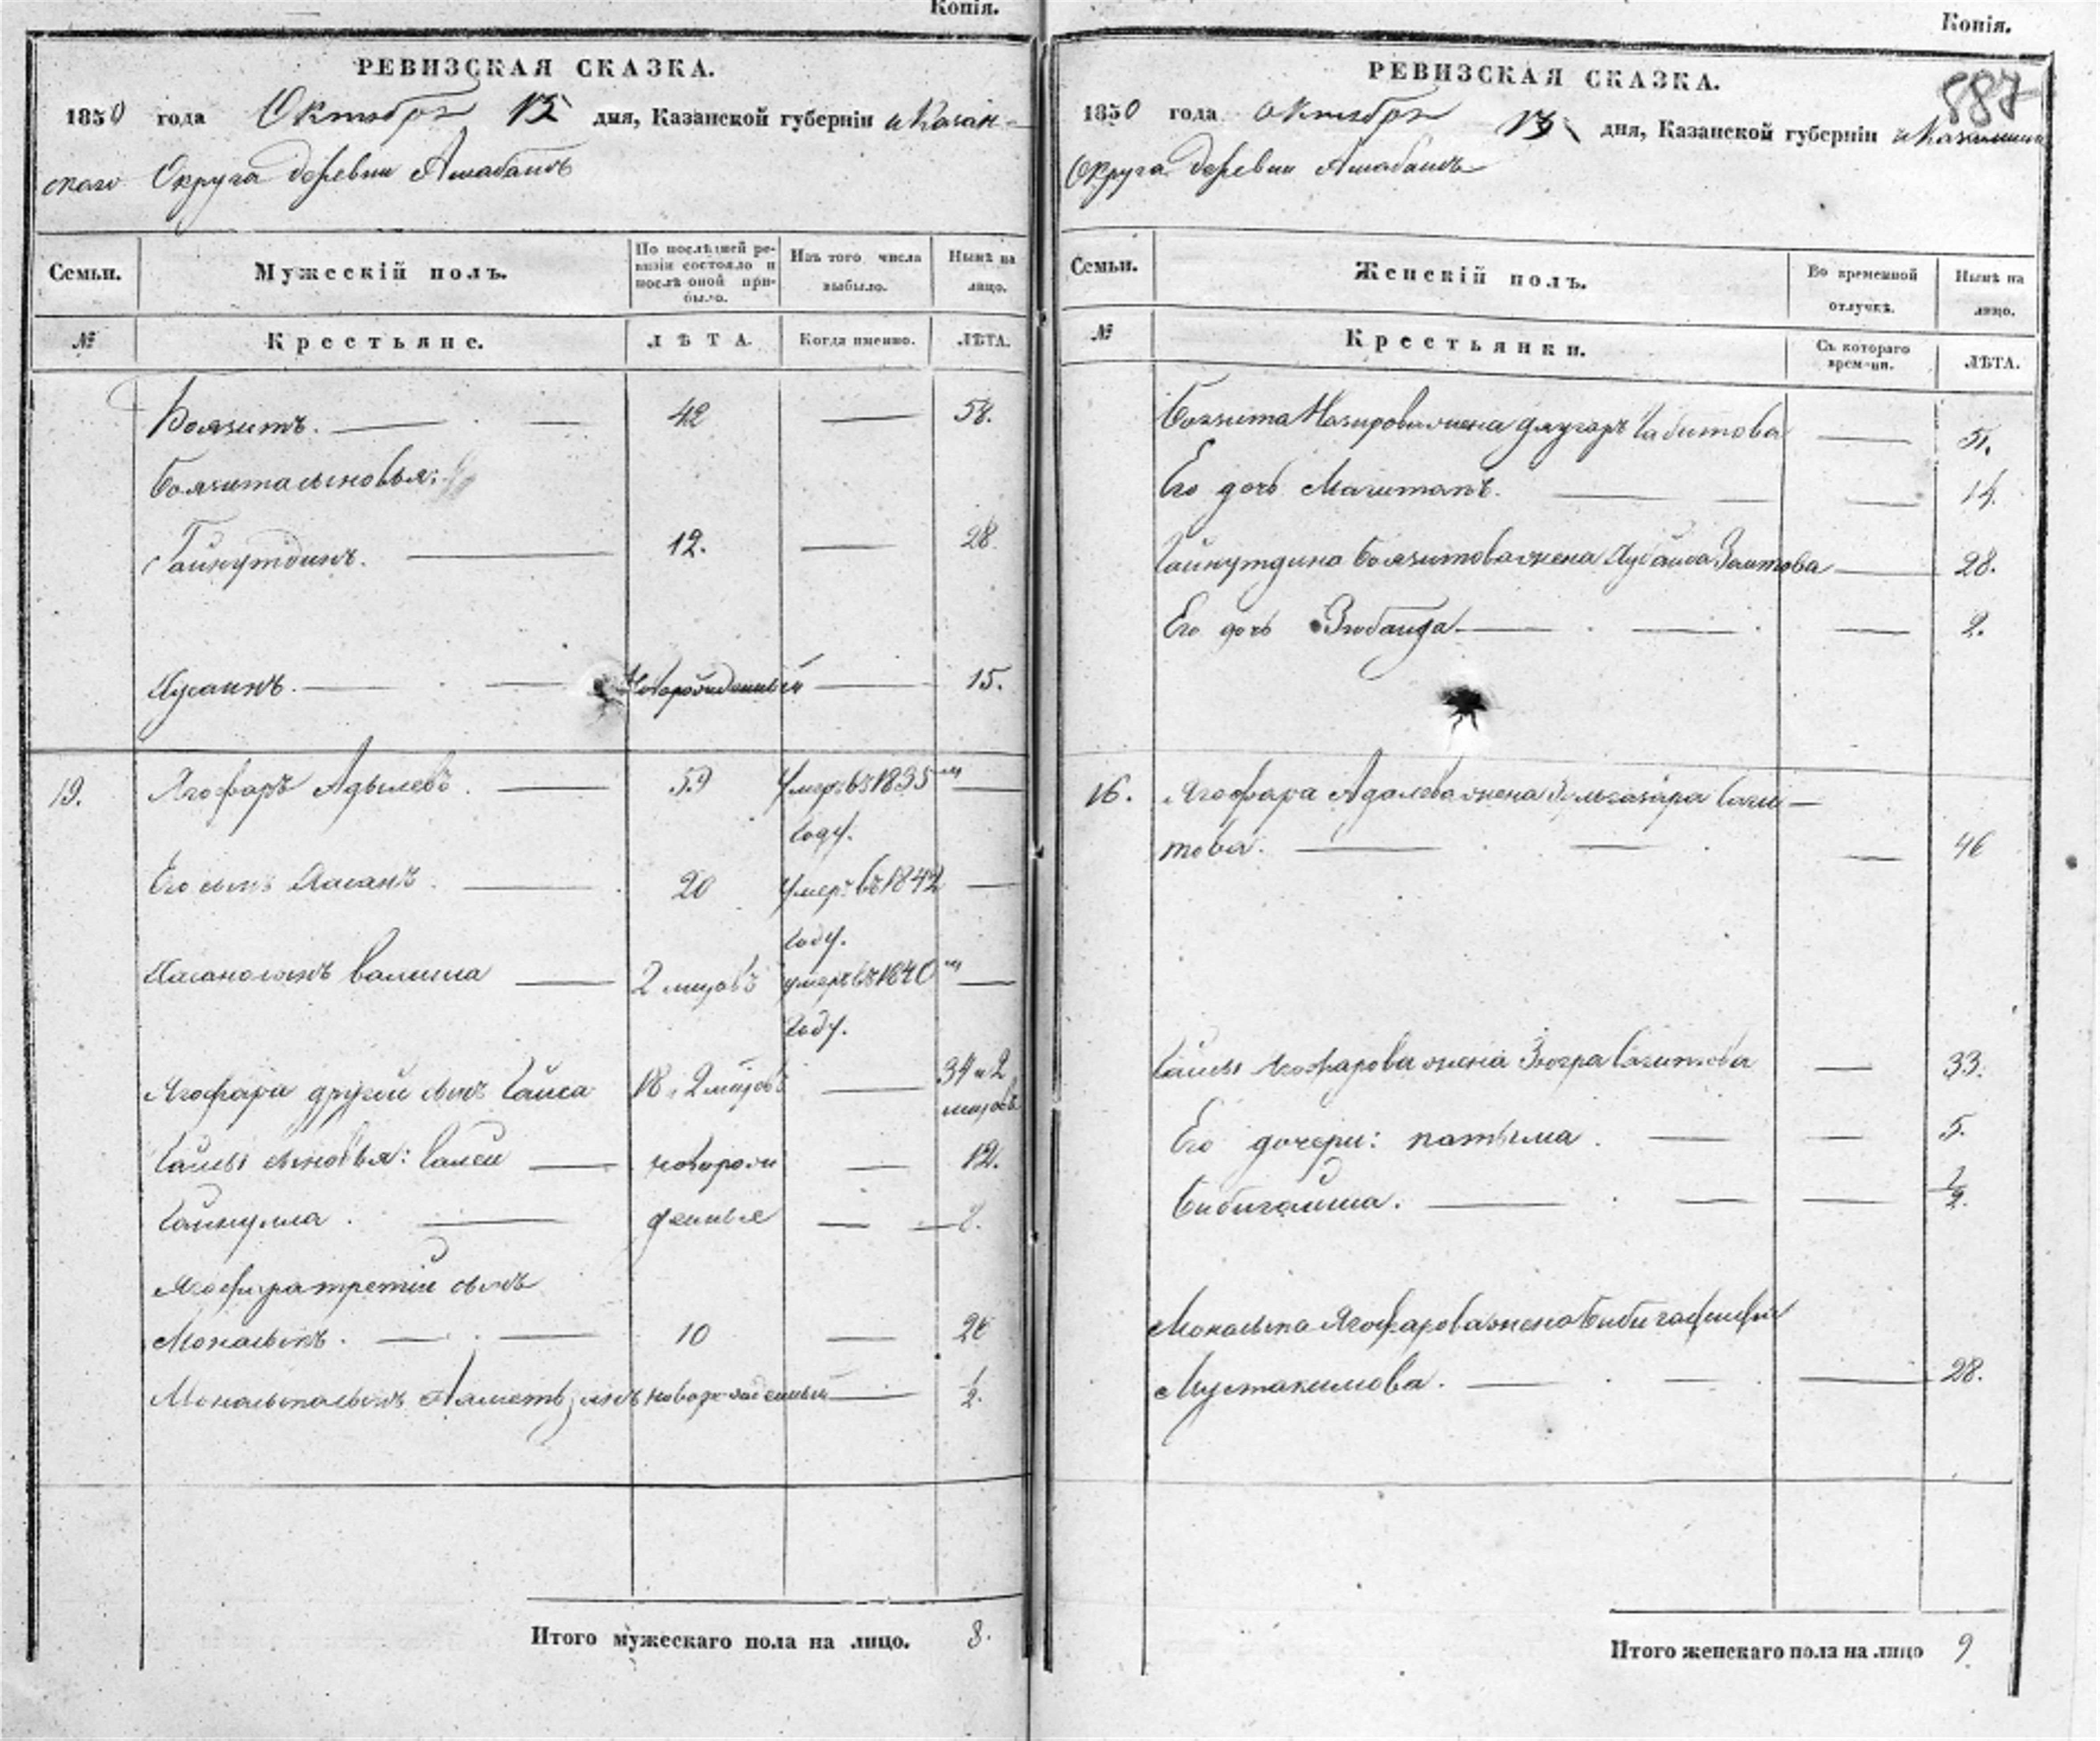 Копія.
РЕВИЗСКАЯ СКАЗКА.
1850 года Октября 15 дня, Казанской губерніи и Казан-
скаго Округа деревни Ашабашъ
Семьи.
Мужескій полъ.
По послѣдней ре-
визіи состояло и
послѣ оной при-
было.
Изъ того числа
выбыло.
Нынѣ на
лицо.
№
Крестьяне.
ЛѢТА.
Когда именно.
ЛѢТА.
Боязитъ. 42 58.
Боязита сыновья:
Гайнутдинъ. 12. 28
Хусаинъ. Новорожденный 15.
19. Ягофаръ Адылевъ. 59 Умеръ въ 1835мъ
году.
Его сынъ Хасанъ. 20 умеръ въ 1842
году.
Хасановъ сынъ Валиша 2 мѣсяцовъ умеръ въ 1840мъ
году.
Ягофара другой сынъ Гайса 18 и 2 мѣсяцовъ 34 и 2
мѣсяцовъ
Гайсы сыновья: новорож 12.
Гайнулла. денные 8.
Ягофара третій сынъ
10 26
сынъ Ахметь новорожденный 1/2.
Итого мужескаго пола на лицо. 8.
Копія.
887
РЕВИЗСКАЯ СКАЗКА.
1850 года октября 15 дня, Казанской губерніи и Казанскаго
Округа деревни Ашабашъ
Семьи.
Женскій полъ.
Во временной
отлучкѣ.
Нынѣ на
лицо.
№
Крестьянки.
Съ котораго
времени.
ЛѢТА.
Боязита жена Габитова 51.
Его дочь 14.
Гайнутдина Боязитова жена Хубайба Заитова 28.
Его дочь Зюбаида 2.
16. Ягофара Адылева жена Саги-
това. 46
Гайсы Ягофарова жена Зюгра Сагитова 33.
Его дочери: патыма. 5.
Бибигайша. 1/2.
Ягофарова жена
Мустакимова. 28.
Итого женскаго пола на лицо 9